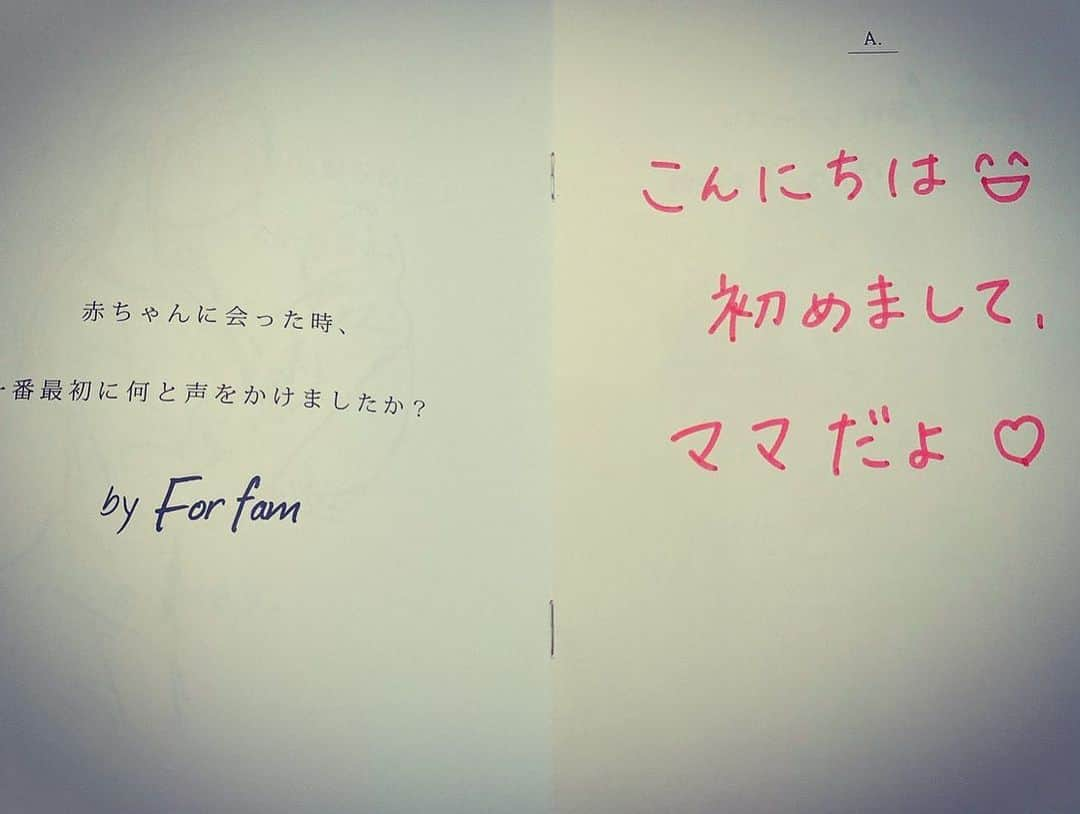 赤ちゃんに会った時、
一番最初に何と声をかけましたか？
by For fam
A.
こんにちは
初めまして、
ママだよ♡